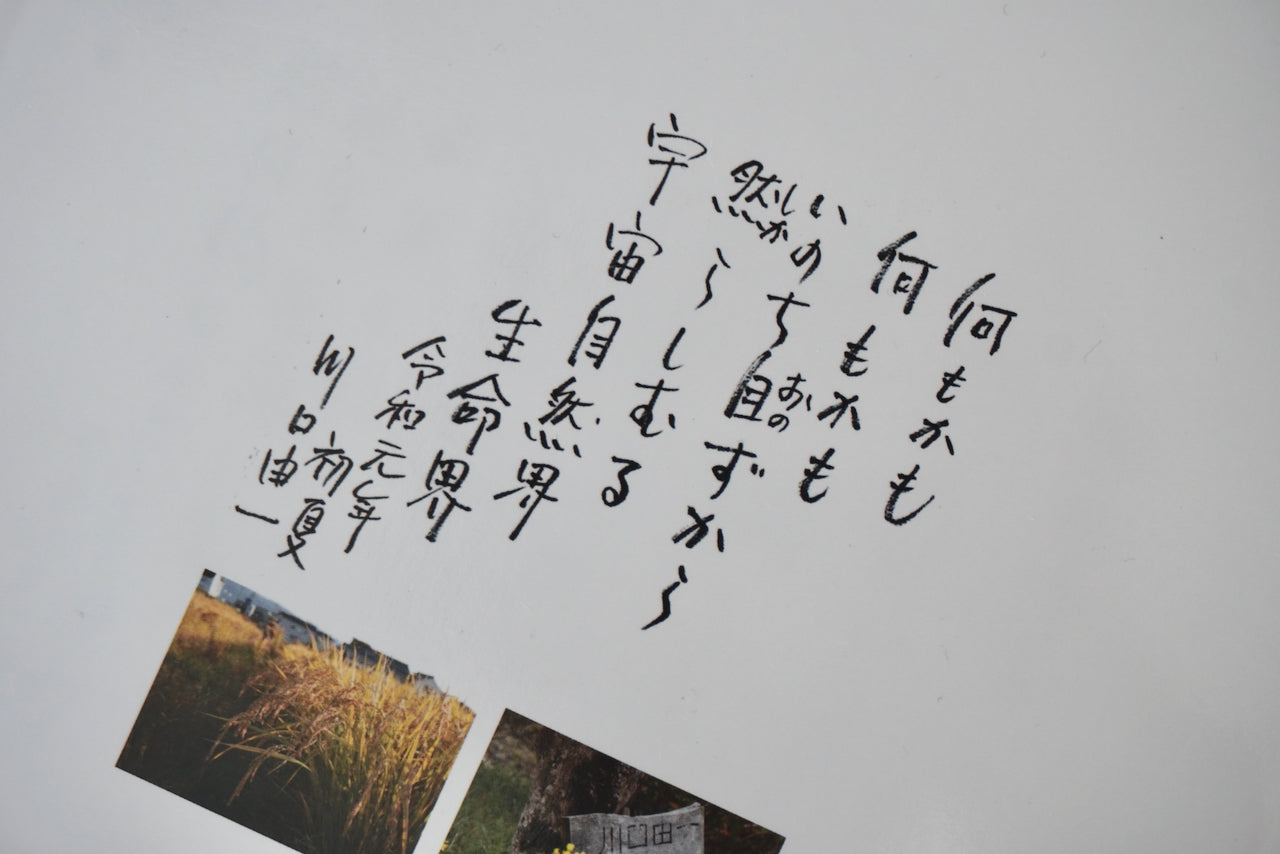 何もかも
何もかも
いのち自ずから
おの
然らしむる
しか
宇宙自然界
生命界
令和元年
初夏
川口由一
川口由一